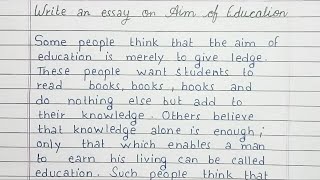 Write an essay on Aim of Education
Some people think that the aim of
education is merely to give ledge.
These people want students to
read books, books, books and
do nothing else but add to
their knowledge. Others believe
that knowledge alone is enough;
only that which enables a man
to earn his living can be called
education. Such people think that